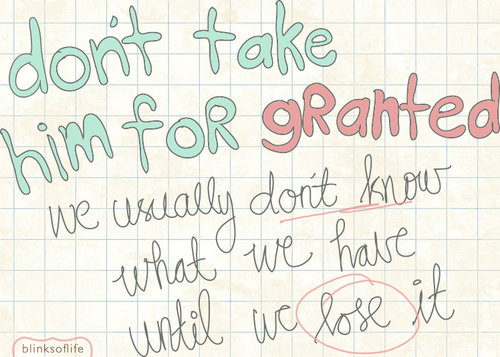 don't take
him foR gRanted
we usually don't know
what we have
until we lose it
blinksoflife